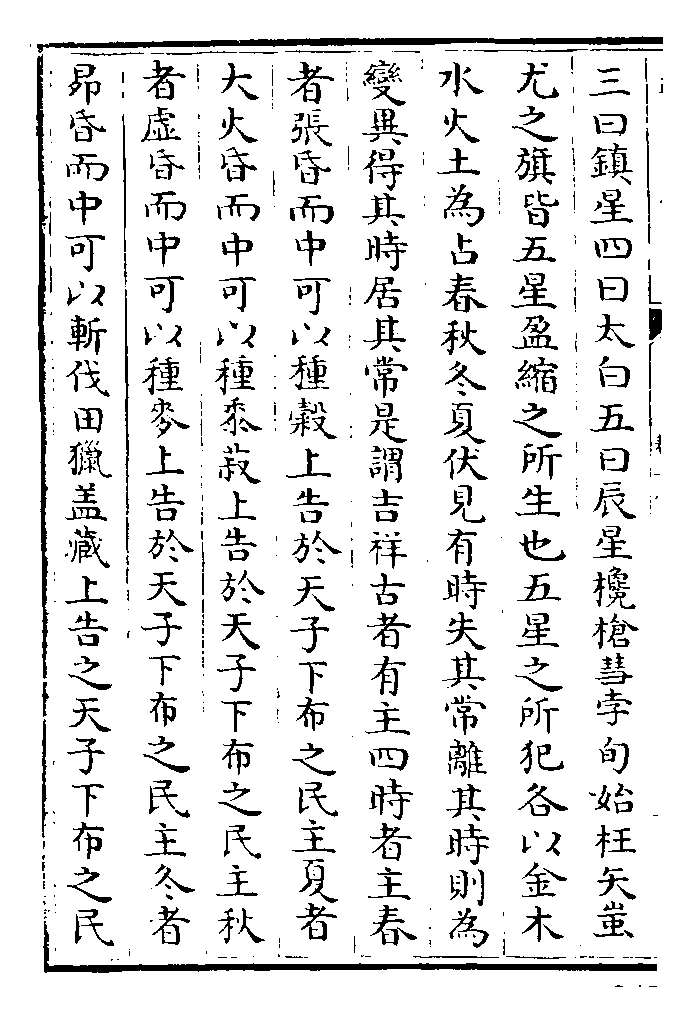 三曰鎮星四曰太白五曰辰星欃槍彗孛旬始枉矢蚩
尤之旗皆五星盈縮之所生也五星之所犯各以金木
水火土為占春秋冬夏伏見有時失其常離其時則為
變異得其時居其常是謂吉祥古者有主四時者主春
者張昏而中可以種穀上告於天子下布之民主夏者
大火昏而中可以種黍菽上告於天子下布之民主秋
者虛昏而中可以種麥上告於天子下布之民主冬者
昴昏而中可以斬伐田獵盖藏上告之天子下布之民